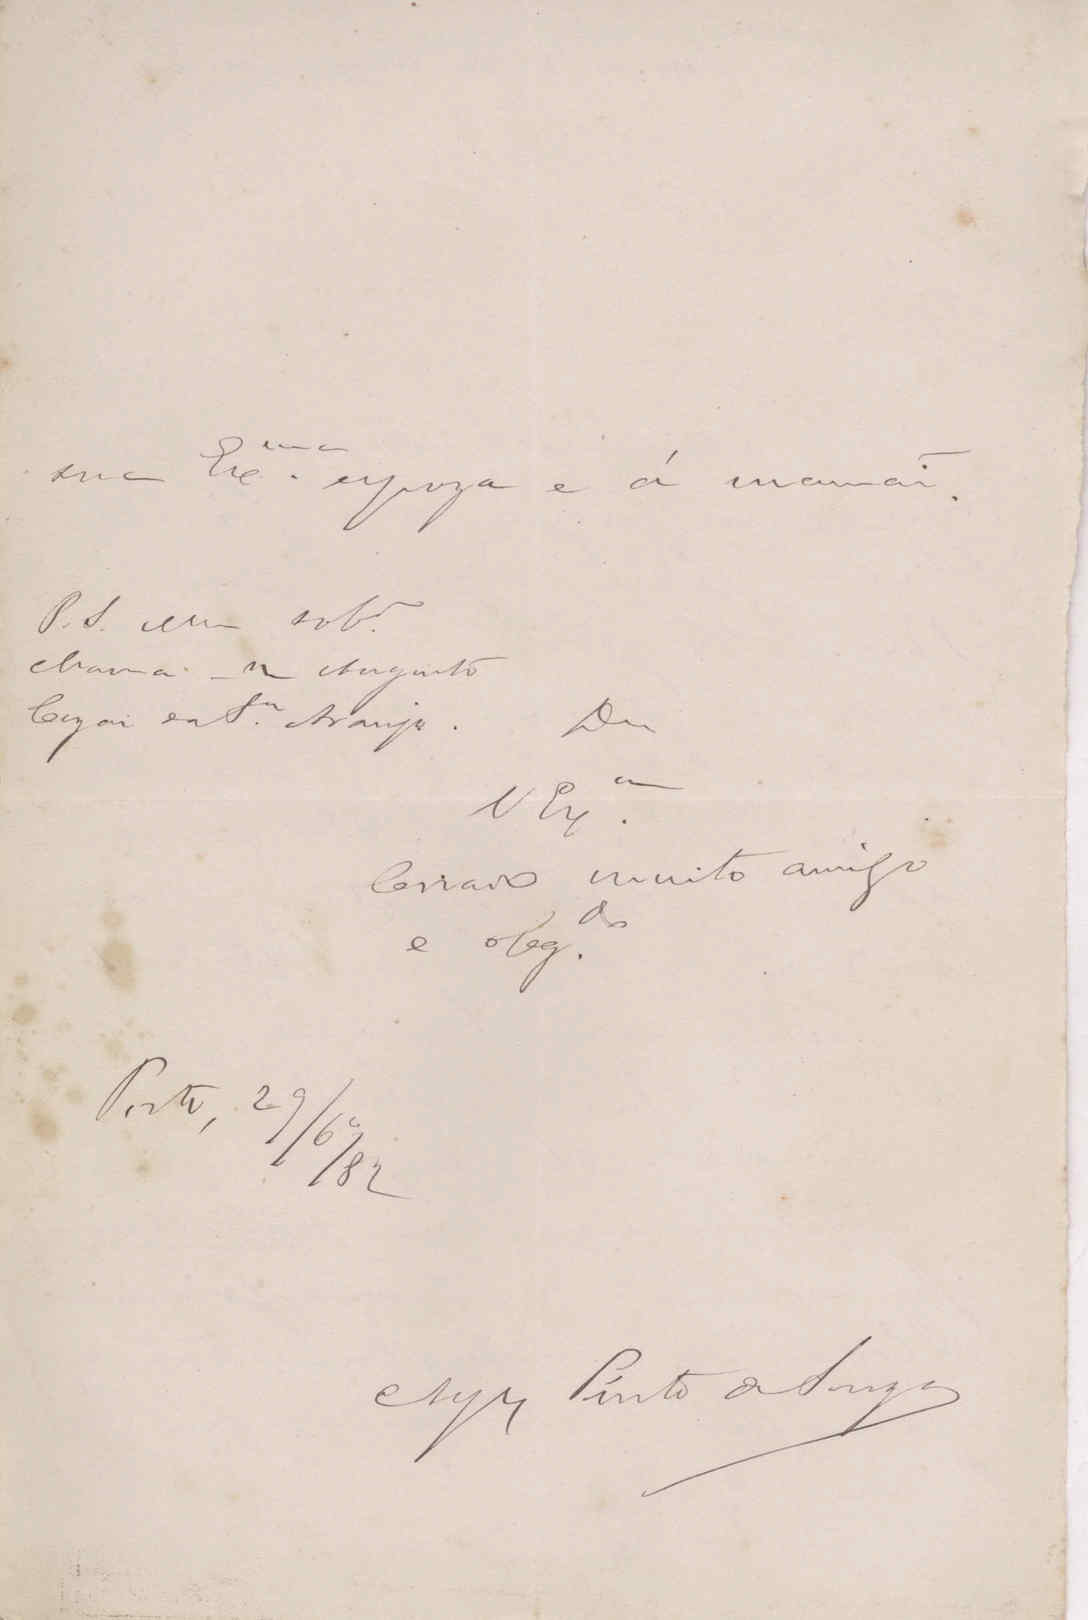 sua Ex.ma espoza e á mamãi.
P.S. Meu sobr.
chama-se Augusto
Cezar da S.a Araujo.
De
V Ex.a
Cerrado muito amigo
e obg.do
Porto, 29/6º/82
Ayres Pinto de Souza